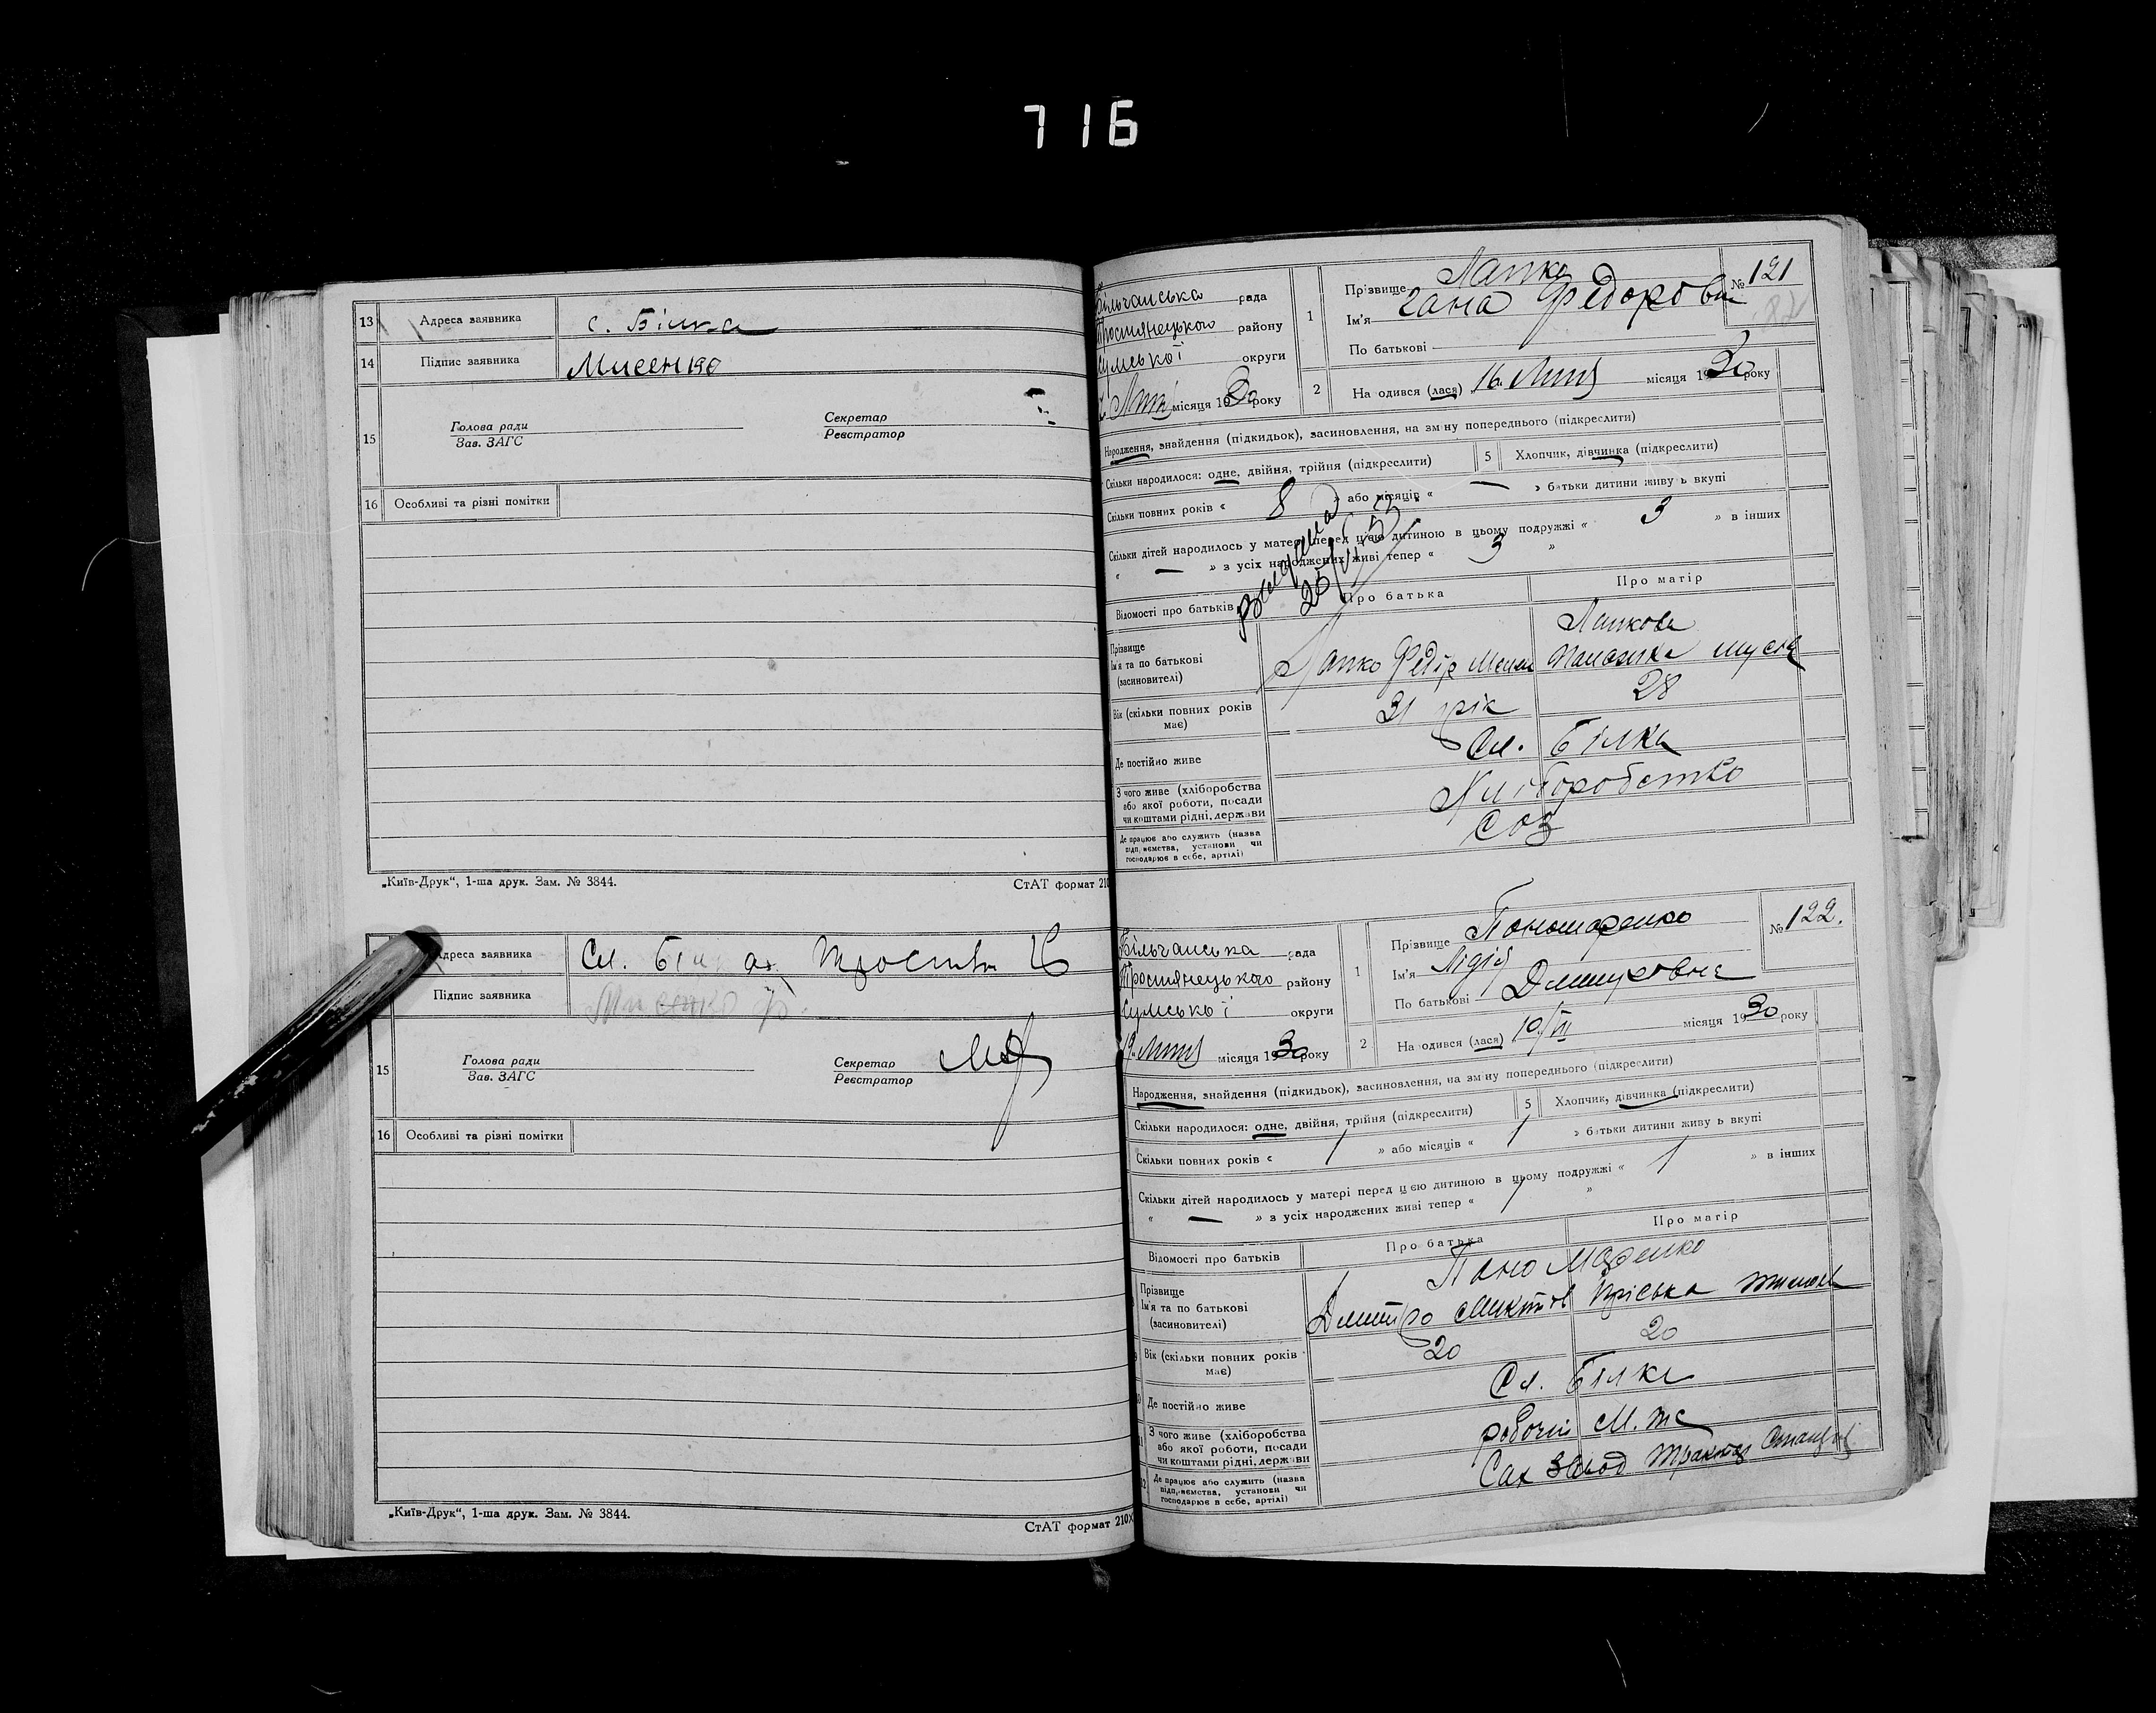 716
13 Адреса заявника с. Білка
14 Підпис заявника Мисенко
15 Голова ради
Зав. ЗАГС
Секретар
Реєстратор
16 Особливі та різні помітки
„Київ-Друк“, 1-ша друк. Зам. № 3844. СтАТ формат 210
Адреса заявника Сл.
Підпис заявника
15 Голова ради
Зав. ЗАГС
Секретар
Реєстратор
16 Особливі та різні помітки
„Київ-Друк“, 1-ша друк. Зам. № 3844. СтАТ формат 210×
Більчанська рада
Тростянецького району
Сумської округи
місяця 1930 року
1 Прізвище Лапко
Ім'я Гана Федоровна
По батькові
№ 121
2 На одився (лася) 16 місяця 1930 року
Народження, знайдення (підкидьок), засиновлення, на зміну попереднього (підкреслити)
Скільки народилося: одне, двійня, трійня (підкреслити) 5 Хлопчик, дівчинка (підкреслити)
Скільки повних років « 8 » або місяців « — » батьки дитини живуть вкупі
Скільки дітей народилось у матері перед цією дитиною в цьому подружжі « 3 » в інших
« — » з усіх народжених живі тепер « 3 »
Відомості про батьків Про батька Про матір
Прізвище
Ім'я та по батькові
(засиновителі)
Лапко Федір
Лапкова
Вік (скільки повних років має) 31 рік 28
Де постійно живе Сл. Білка
З чого живе (хліборобства
або якої роботи, посади
чи коштами рідні, держави
Хліборобство
Де працює або служить (назва
підприємства, установи чи
господарює в себе, артілі)
СОЗ
Більчанська рада
Тростянецького району
Сумської округи
місяця 1930 року
1 Прізвище Пономаренко
Ім'я Лідія
По батькові Дмитровна
№ 122.
2 На одився (лася) 10/III місяця 1930 року
Народження, знайдення (підкидьок), засиновлення, на зміну попереднього (підкреслити)
Скільки народилося: одне, двійня, трійня (підкреслити) 5 Хлопчик, дівчинка (підкреслити)
Скільки повних років « 1 » або місяців « 1 » батьки дитини живуть вкупі
Скільки дітей народилось у матері перед цією дитиною в цьому подружжі « 1 » в інших
« — » з усіх народжених живі тепер « 1 »
Відомості про батьків Про батька Про матір
Пономаренко
Прізвище
Ім'я та по батькові
(засиновителі)
Дмитро Пріська
Вік (скільки повних років має) 20 20
Де постійно живе Сл. Білка
З чого живе (хліборобства
або якої роботи, посади
чи коштами рідні, держави
робочий
Де працює або служить (назва
підприємства, установи чи
господарює в себе, артілі)
Сах Завод